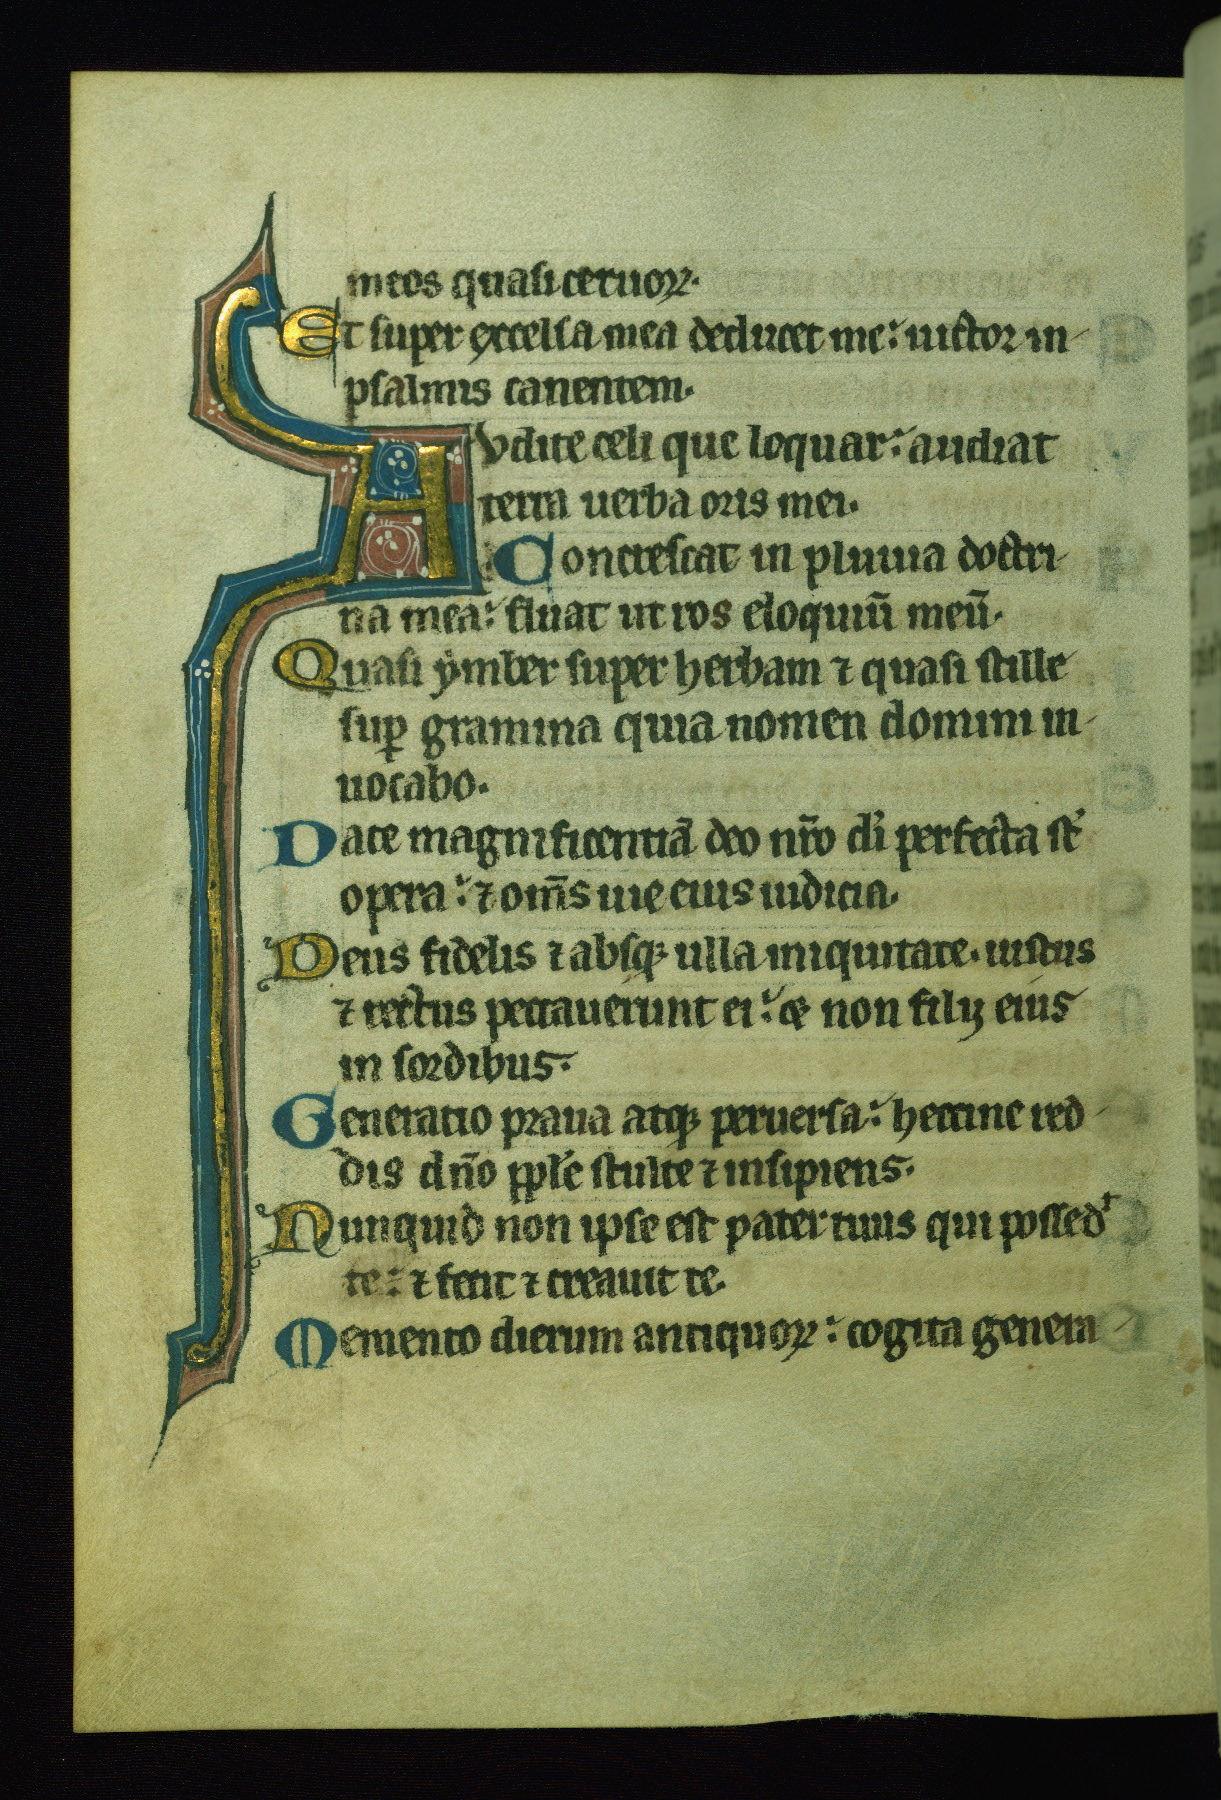 meos quasi ceruoꝝ.
Et super excelsa mea deducet me: uictor in
psalmis canentem.
Audite celi que loquar: audiat
terra uerba oris mei.
Concrescat in pluuia doctri
na mea: fluat ut ros eloquiū meū.
Quasi ymber super herbam ⁊ quasi stille
suꝑ gramina quia nomen domini in
uocabo.
Date magnificentiā deo nr̄o di perfecta st̄
opera: ⁊ om̄s uie eius iudicia.
Deus fidelis ⁊ absqꝫ ulla iniquitate. iustus
⁊ rectus peccauerunt ei: ⁊ non filij eius
in sordibus.
Generatio praua atqꝫ peruersa: heccine red
dis dn̄o pple stulte ⁊ insipiens.
Nunquid non ipse est pater tuus qui possed
te: ⁊ fecit ⁊ creauit te.
Memento dierum antiquoꝝ: cogita genera